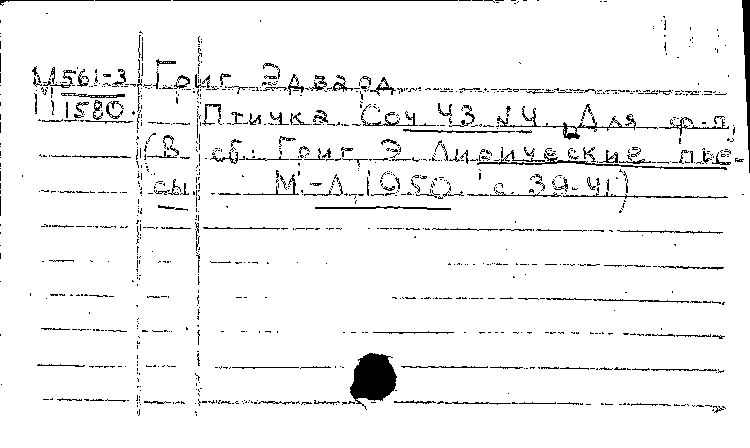 М561-3 Григ, Эдвард
П1580. Птичка. Соч. 43 №4. Для ф-п.
(В сб.: Григ, Э. Лирические пье-
сы. М.-Л., 1950. с. 39-41)